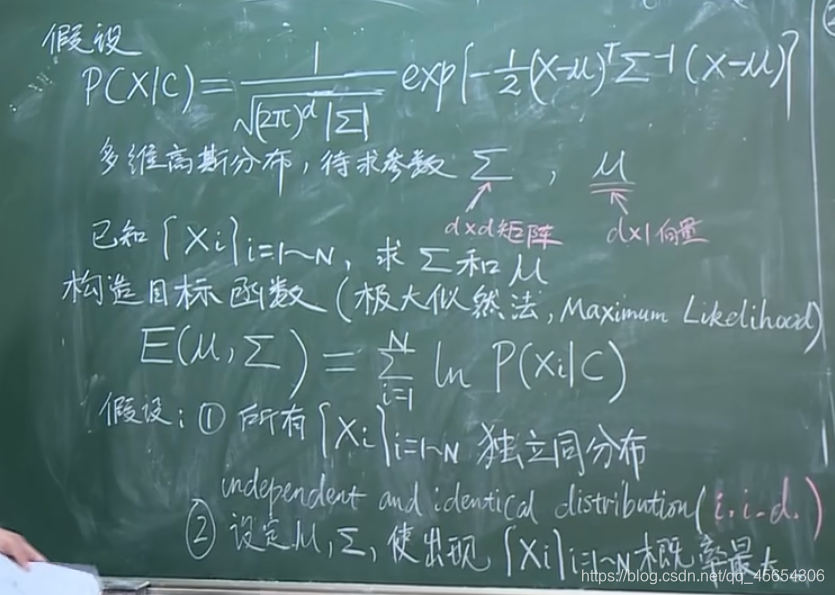 假设
P(X|C) = 1/√((2π)^d |Σ|) exp{-1/2 (X-μ)^T Σ^-1 (X-μ)}
多维高斯分布，待求参数 Σ , μ
d×d矩阵 d×1向量
已知{Xi}i=1~N, 求 Σ 和 μ
构造目标函数 (极大似然法, Maximum Likelihood)
E(μ, Σ) = Σ_{i=1}^{N} ln P(Xi|C)
假设: ① 所有{Xi}i=1~N 独立同分布
independent and identical distribution (i.i.d.)
② 设定μ, Σ, 使出现{Xi}i=1~N概率最大
https://blog.csdn.net/qq_45654306